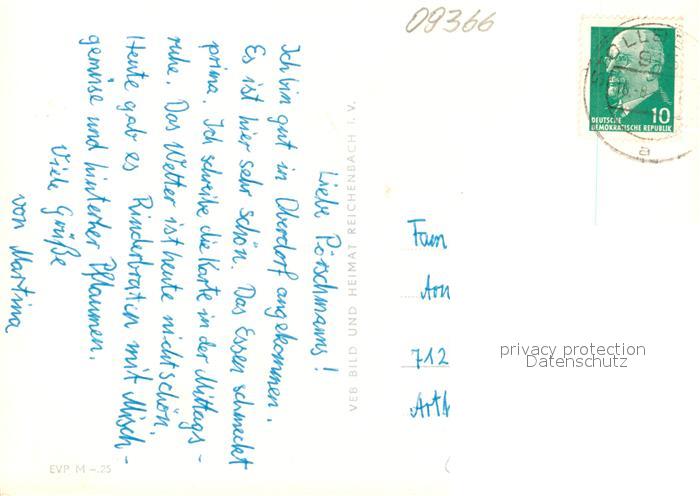 09366
DEUTSCHE
DEMOKRATISCHE REPUBLIK
10
a
Liebe Pörschmanns!
Ich bin gut in Oberdorf angekommen.
Es ist hier sehr schön. Das Essen schmeckt
prima. Ich schreibe die Karte in der Mittags-
ruhe. Das Wetter ist heute nicht schön.
Heute gab es Rinderbraten mit Misch-
gemüse und hinterher Pflaumen.
Viele Grüße
von Martina
VEB BILD UND HEIMAT REICHENBACH I. V.
Fam
712
privacy protection
Datenschutz
EVP M –.25